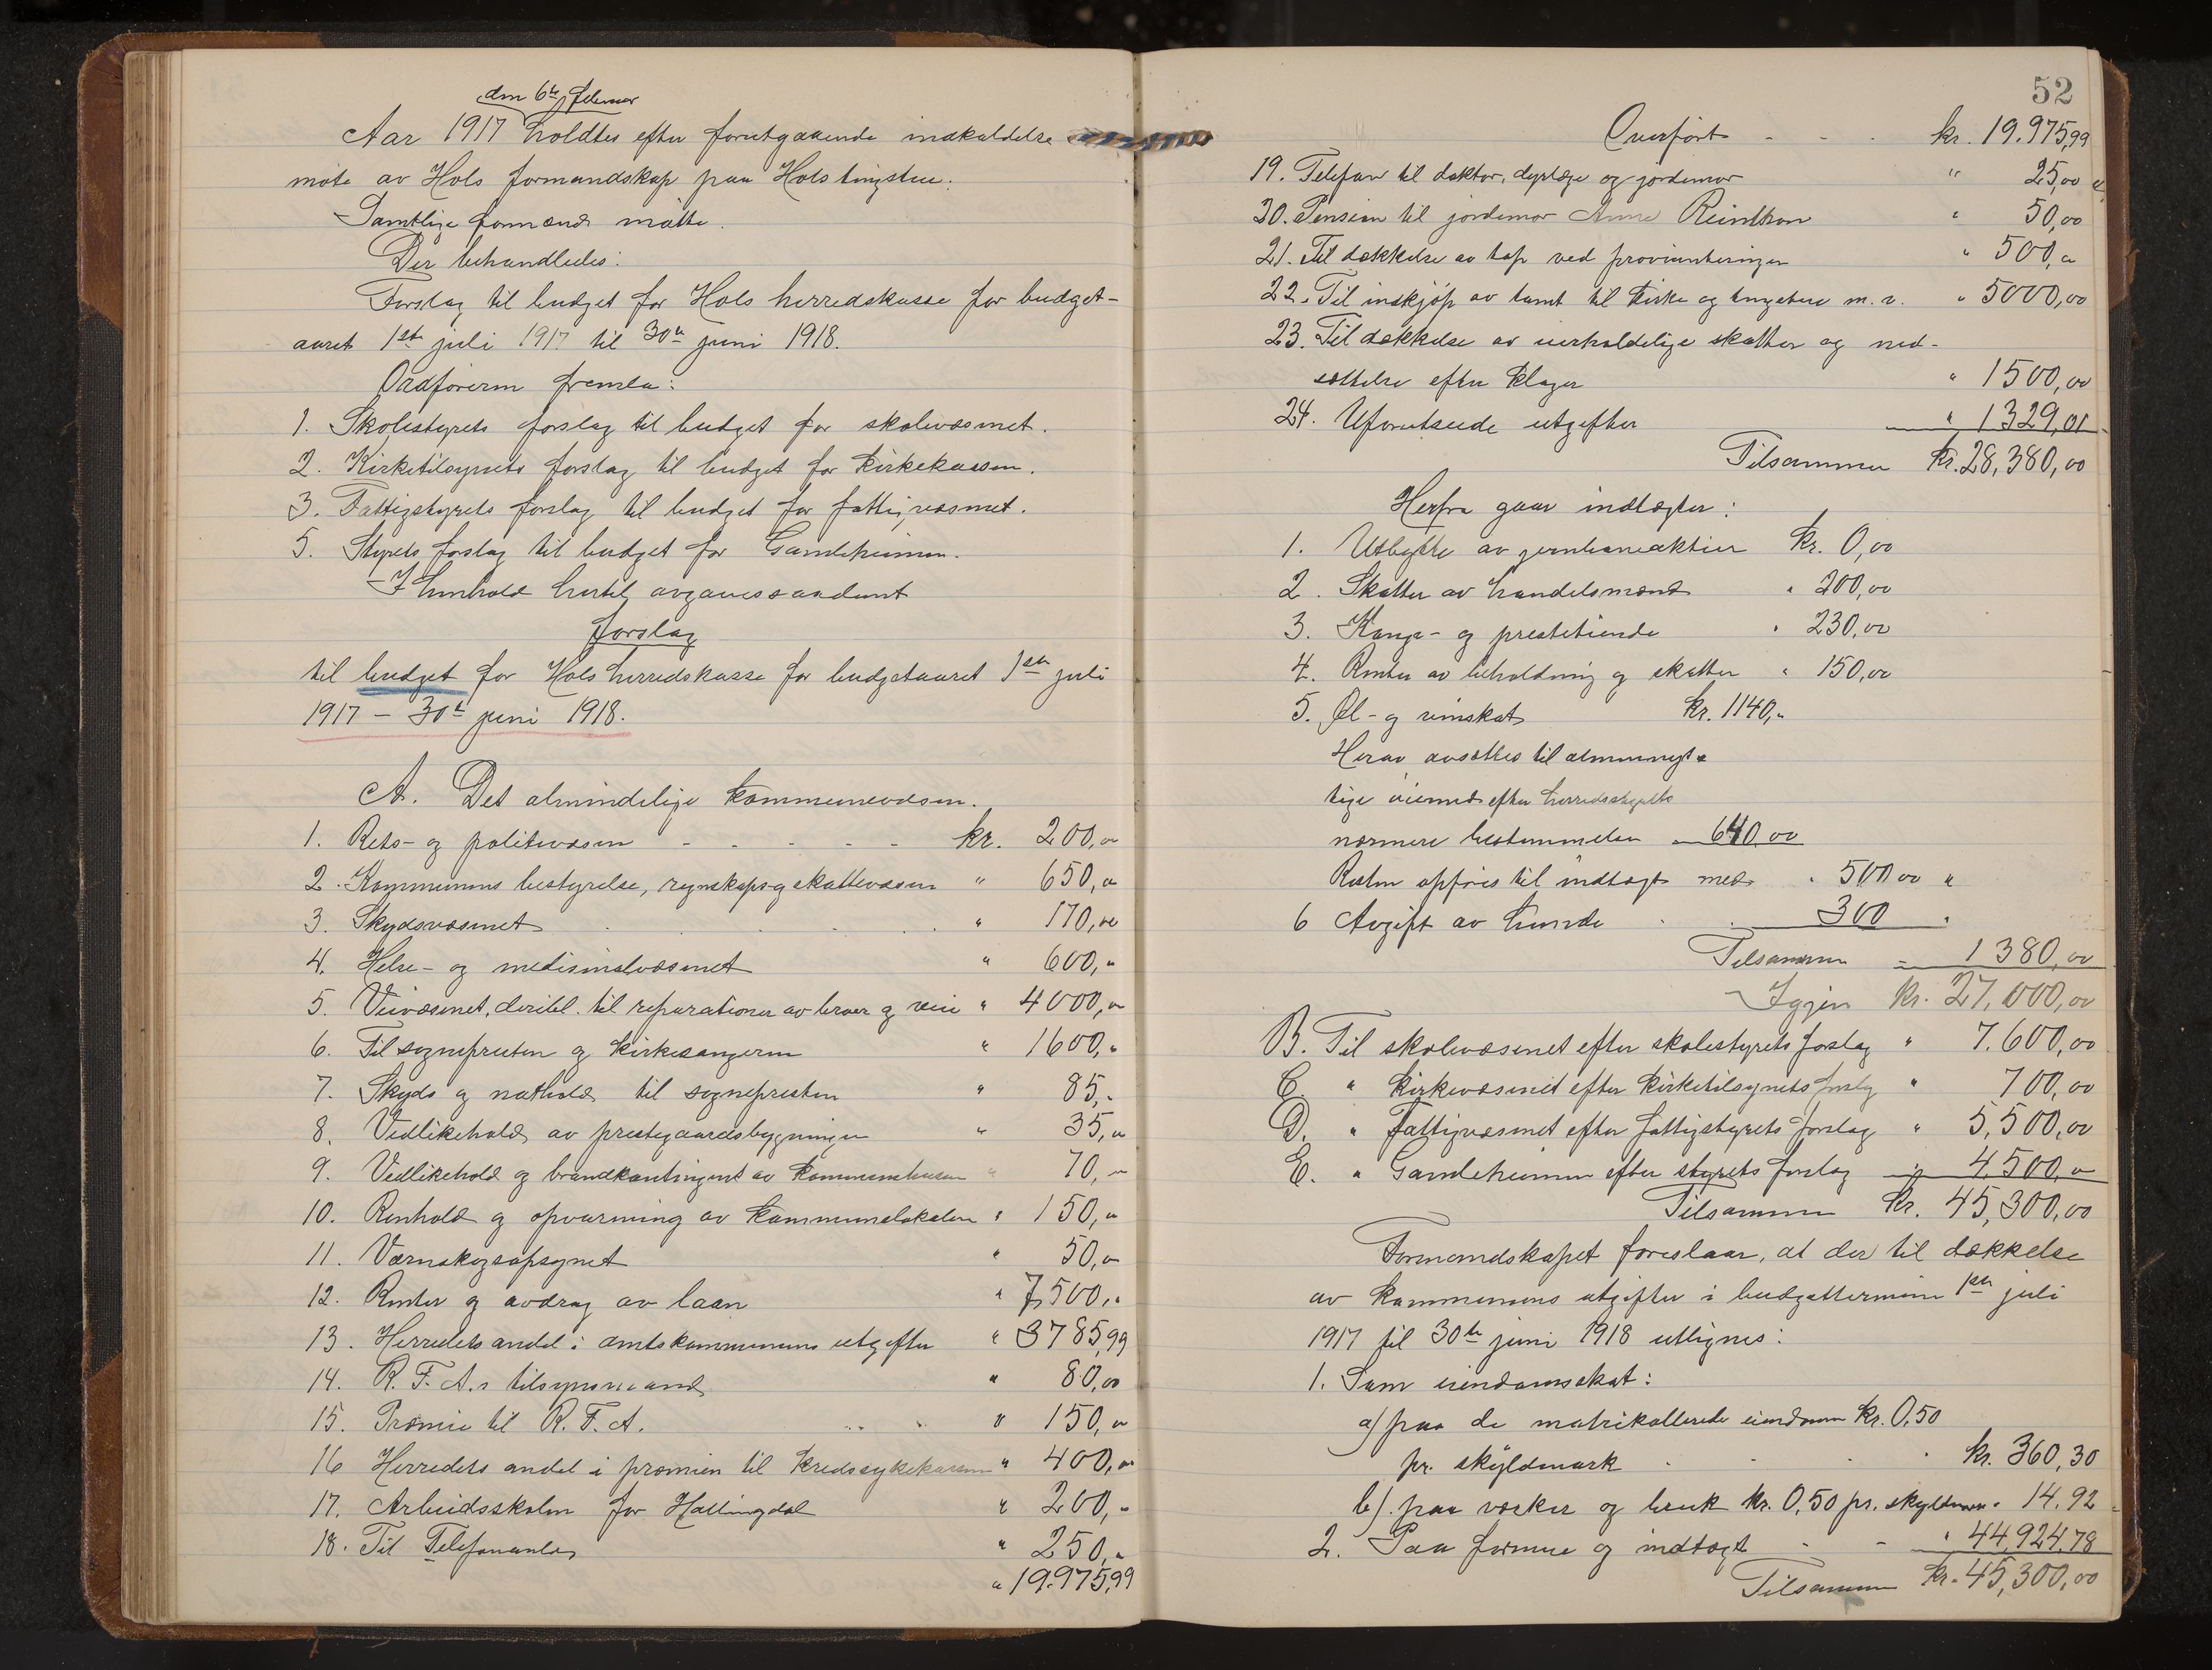 den 6te februar
Aar 1917 holdtes efter forutgaaende indkaldelse
møte av Hols formandskap paa Hols tingstue.
Samtlige formænd møtte.
Der behandledes:
Forslag til budget for Hols herredskasse for budget-
aaret 1ste juli 1917 til 30te juni 1918.
Ordføreren fremla:
1. Skolestyrets forslag til budget for skolevæsenet.
2. Kirketilsynets forslag til budget for kirkekassen.
3. Fattigstyrets forslag til budget for fattigvæsenet.
5. Styrets forslag til budget for Gamleheimen.
I henhold hertil avgaves saadant
forslag
til budget for Hols herredskasse for budgetaaret 1ste juli
1917 – 30te juni 1918.
A. Det almindelige kommunevæsen.
1. Rets- og politivæsen - - - - - kr. 200,00
2. Kommunens bestyrelse, regnskaps- og skattevæsen " 650,00
3. Skydsvæsenet " 170,00
4. Helse- og medisinalvæsenet " 600,"
5. Veivæsenet, deribl. til reparationer av broer og veie " 4000,00
6. Til sognepresten og kirkesangeren " 1600,"
7. Skyds og nathold til sognepresten " 85,"
8. Vedlikehold av prestegaardsbygninger " 35,00
9. Vedlikehold og brandkontingent av kommunehusene " 70,"
10. Renhold og opvarming av kommunelokalen " 150,"
11. Vernskogsopsynet " 50,00
12. Renter og avdrag av laan " 7,500,"
13. Herredets andel i amtskommunens utgifter " 3785,99
14. R. F. A.s tilsynsmand " 80,00
15. Præmie til R. F. A. " 150,00
16 Herredets andel i præmien til kredssykekassen " 400,00
17. Arbeidsskolen for Hallingdal " 200,"
18. Til Telefonanlæg " 250,"
" 19.975,99
52
Overført - - - kr. 19.975,99
19. Telefon til doktor, dyrlæge og jordemor " 25,00
20. Pension til jordemor Anne Reinton " 50,00
21. Til dækkelse av tap ved provianteringen " 500,"
22. Til indkjøp av tomt til kirke og tingstue m. v. " 5000,00
23. Til dækkelse av uerholdelige skatter og ned-
sættelse efter klager " 1500,00
24. Uforutseede utgifter " 1329,01
Tilsammen kr. 28,380,00
Herfra gaar indtægter:
1. Utbytte av jernbaneaktier kr. 0,00
2. Skatter av handelsmænd " 200,00
3. Konge- og prestetiende " 230,00
4. Renter av beholdning og skatter " 150,00
5. Øl- og vinskat kr. 1140,"
Herav avsættes til almennyt-
tige øiemed efter herredsstyrets
nærmere bestemmelse " 640,00
Resten opføres til indtægt med " 500,00 "
6 Avgift av hunde 300 "
Tilsammen " 1 380,00
Igjen kr. 27,000,00
B. Til skolevæsenet efter skolestyrets forslag " 7.600,00
C. " kirkevæsenet efter kirketilsynets forslag " 700,00
D. " fattigvæsenet efter fattigstyrets forslag " 5,500,00
E. " Gamleheimen efter styrets forslag " 4,500,"
Tilsammen kr. 45,300,00
Formandskapet foreslaar, at der til dækkelse
av kommunens utgifter i budgetterminen 1ste juli
1917 til 30te juni 1918 utlignes:
1. Som eiendomsskat:
a) paa de matrikullerede eiendomme kr. 0,50
pr. skyldmark kr. 360,30
b). paa verker og bruk kr. 0,50 pr. skyldmark " 14,92
2. Paa formue og indtægt - - " 44,924,78
Tilsammen kr. 45,300,00